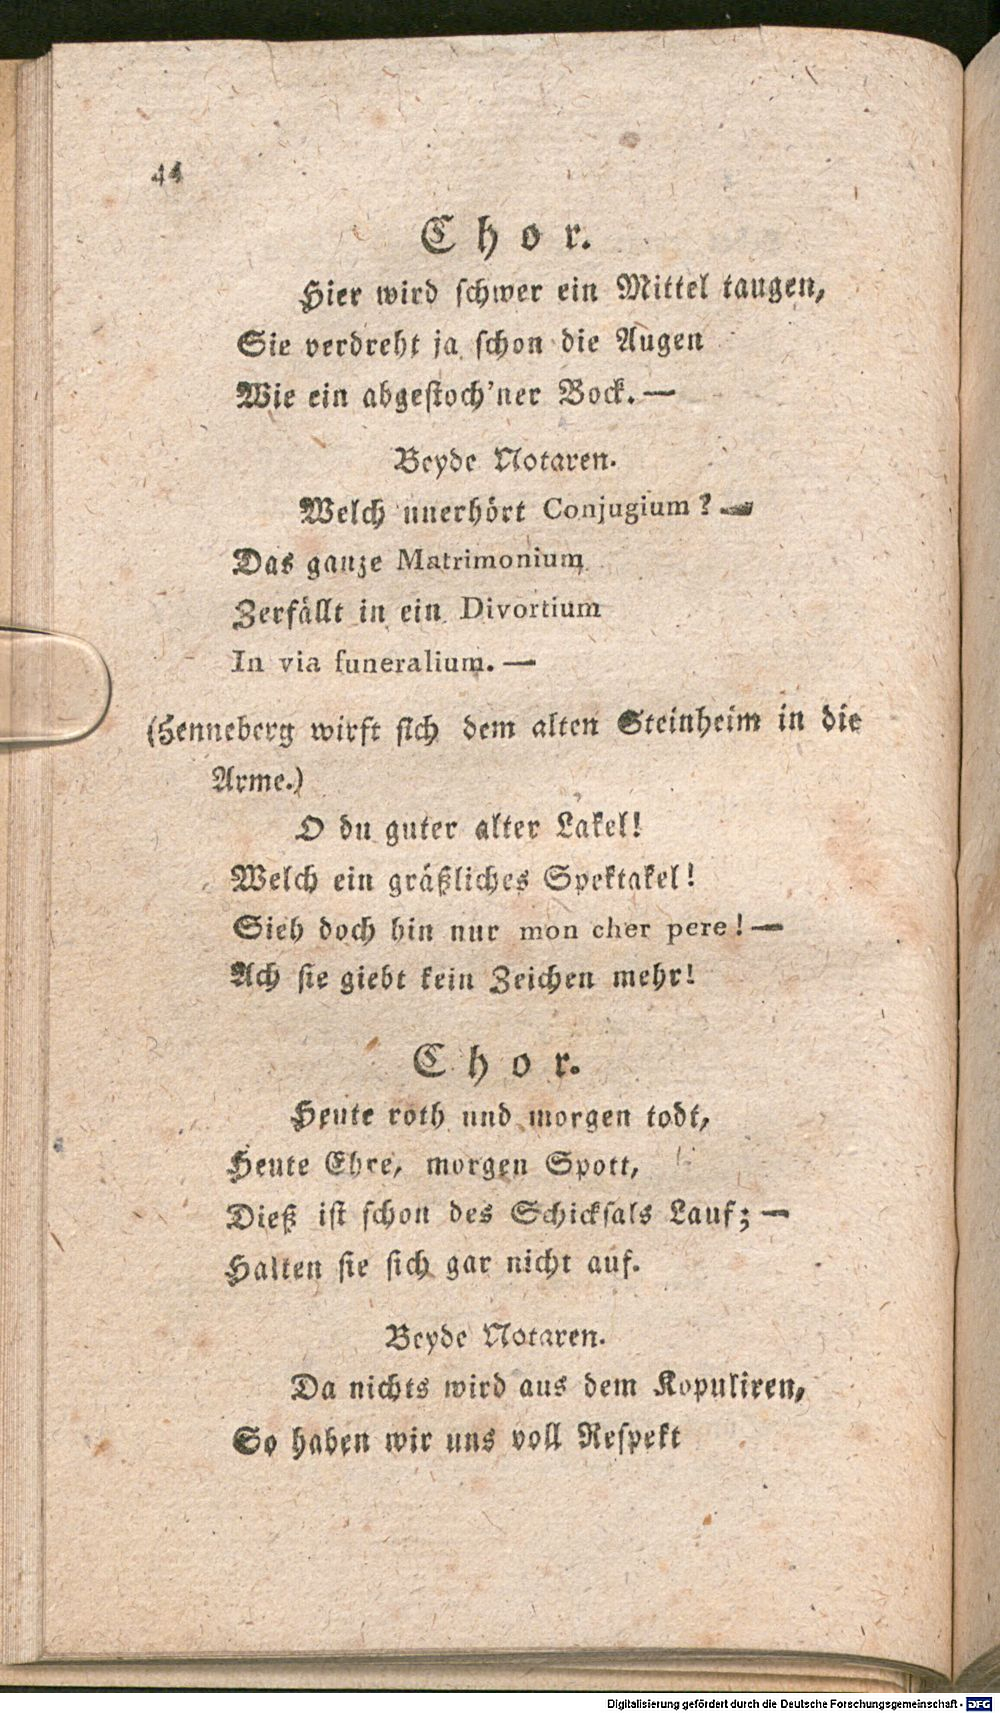 44
Chor.
Hier wird schwer ein Mittel taugen,
Sie verdreht ja schon die Augen
Wie ein abgestoch'ner Bock. —
Beyde Notaren.
Welch unerhört Conjugium? —
Das ganze Matrimonium
Zerfällt in ein Divortium
In via funeralium. —
(Henneberg wirft sich dem alten Steinheim in die
Arme.)
O du guter alter Lakel!
Welch ein gräßliches Spektakel!
Sieh doch hin nur mon cher pere! —
Ach sie giebt kein Zeichen mehr!
Chor.
Heute roth und morgen todt,
Heute Ehre, morgen Spott,
Dieß ist schon des Schicksals Lauf; —
Halten sie sich gar nicht auf.
Beyde Notaren.
Da nichts wird aus dem Kopuliren,
So haben wir uns voll Respekt
Digitalisierung gefördert durch die Deutsche Forschungsgemeinschaft - DFG